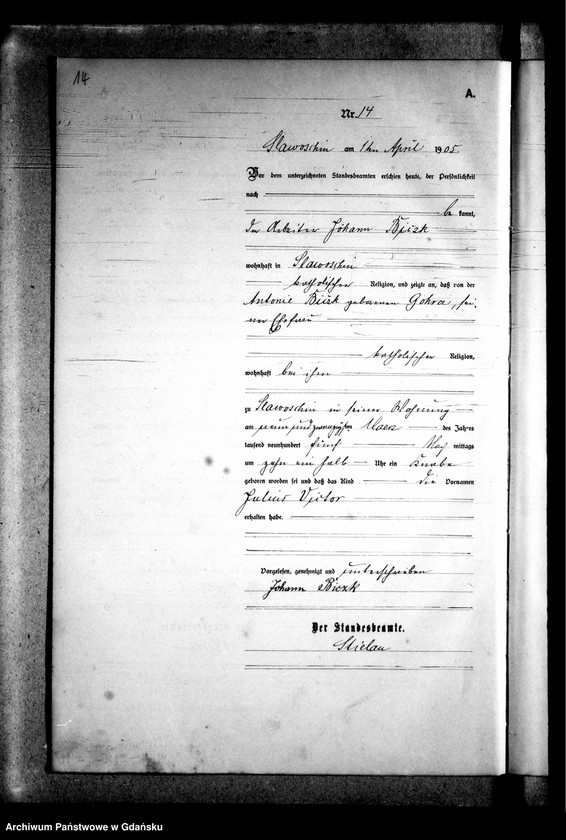 14
A.
Nr. 14
Slawoschin am 1ten April 1905
Vor dem unterzeichneten Standesbeamten erschien heute, der Persönlichkeit
nach
be kannt,
der Arbeiter Johann Biczk
wohnhaft in Slawoschin
katholischer Religion, und zeigte an, daß von der
Antonie Biczk geborenen Gohra, sei-
ner Ehefrau
katholischer Religion,
wohnhaft bei ihm
zu Slawoschin in seiner Wohnung
am neun und zwanzigsten Maerz des Jahres
tausend neunhundert fünf mittags
um zehn ein halb Uhr ein Knabe
geboren worden sei und daß das Kind die Vornamen
Julius Victor
erhalten habe.
Vorgelesen, genehmigt und unterschrieben
Johann Biczk
Der Standesbeamte.
Stielau
Archiwum Państwowe w Gdańsku